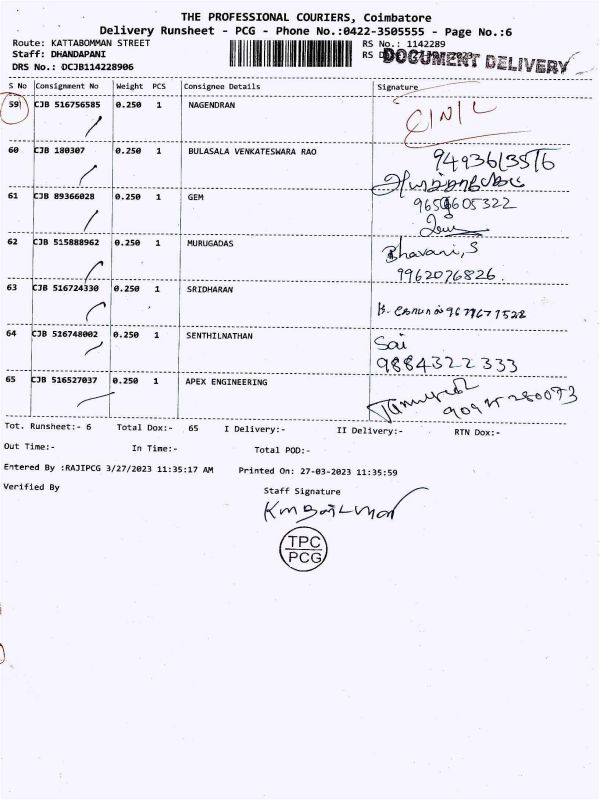 THE PROFESSIONAL COURIERS, Coimbatore
Delivery Runsheet - PCG - Phone No.:0422-3505555 - Page No.:6
Route: KATTABOMMAN STREET RS No.: 1142289
Staff: DHANDAPANI RS D DOCUMENT DELIVERY
DRS No.: DCJB114228906
S No Consignment No Weight PCS Consignee Details Signature
59 CJB 516756585 0.250 1 NAGENDRAN
60 CJB 180307 0.250 1 BULASALA VENKATESWARA RAO
61 CJB 89366028 0.250 1 GEM
62 CJB 515888962 0.250 1 MURUGADAS Bhavani, S
9962076826.
63 CJB 516724330 0.250 1 SRIDHARAN
64 CJB 516748002 0.250 1 SENTHILNATHAN Sai
9884322333
65 CJB 516527037 0.250 1 APEX ENGINEERING
Tot. Runsheet:- 6 Total Dox:- 65 I Delivery:- II Delivery:- RTN Dox:-
Out Time:- In Time:- Total POD:-
Entered By :RAJIPCG 3/27/2023 11:35:17 AM Printed On: 27-03-2023 11:35:59
Verified By Staff Signature
TPC
PCG